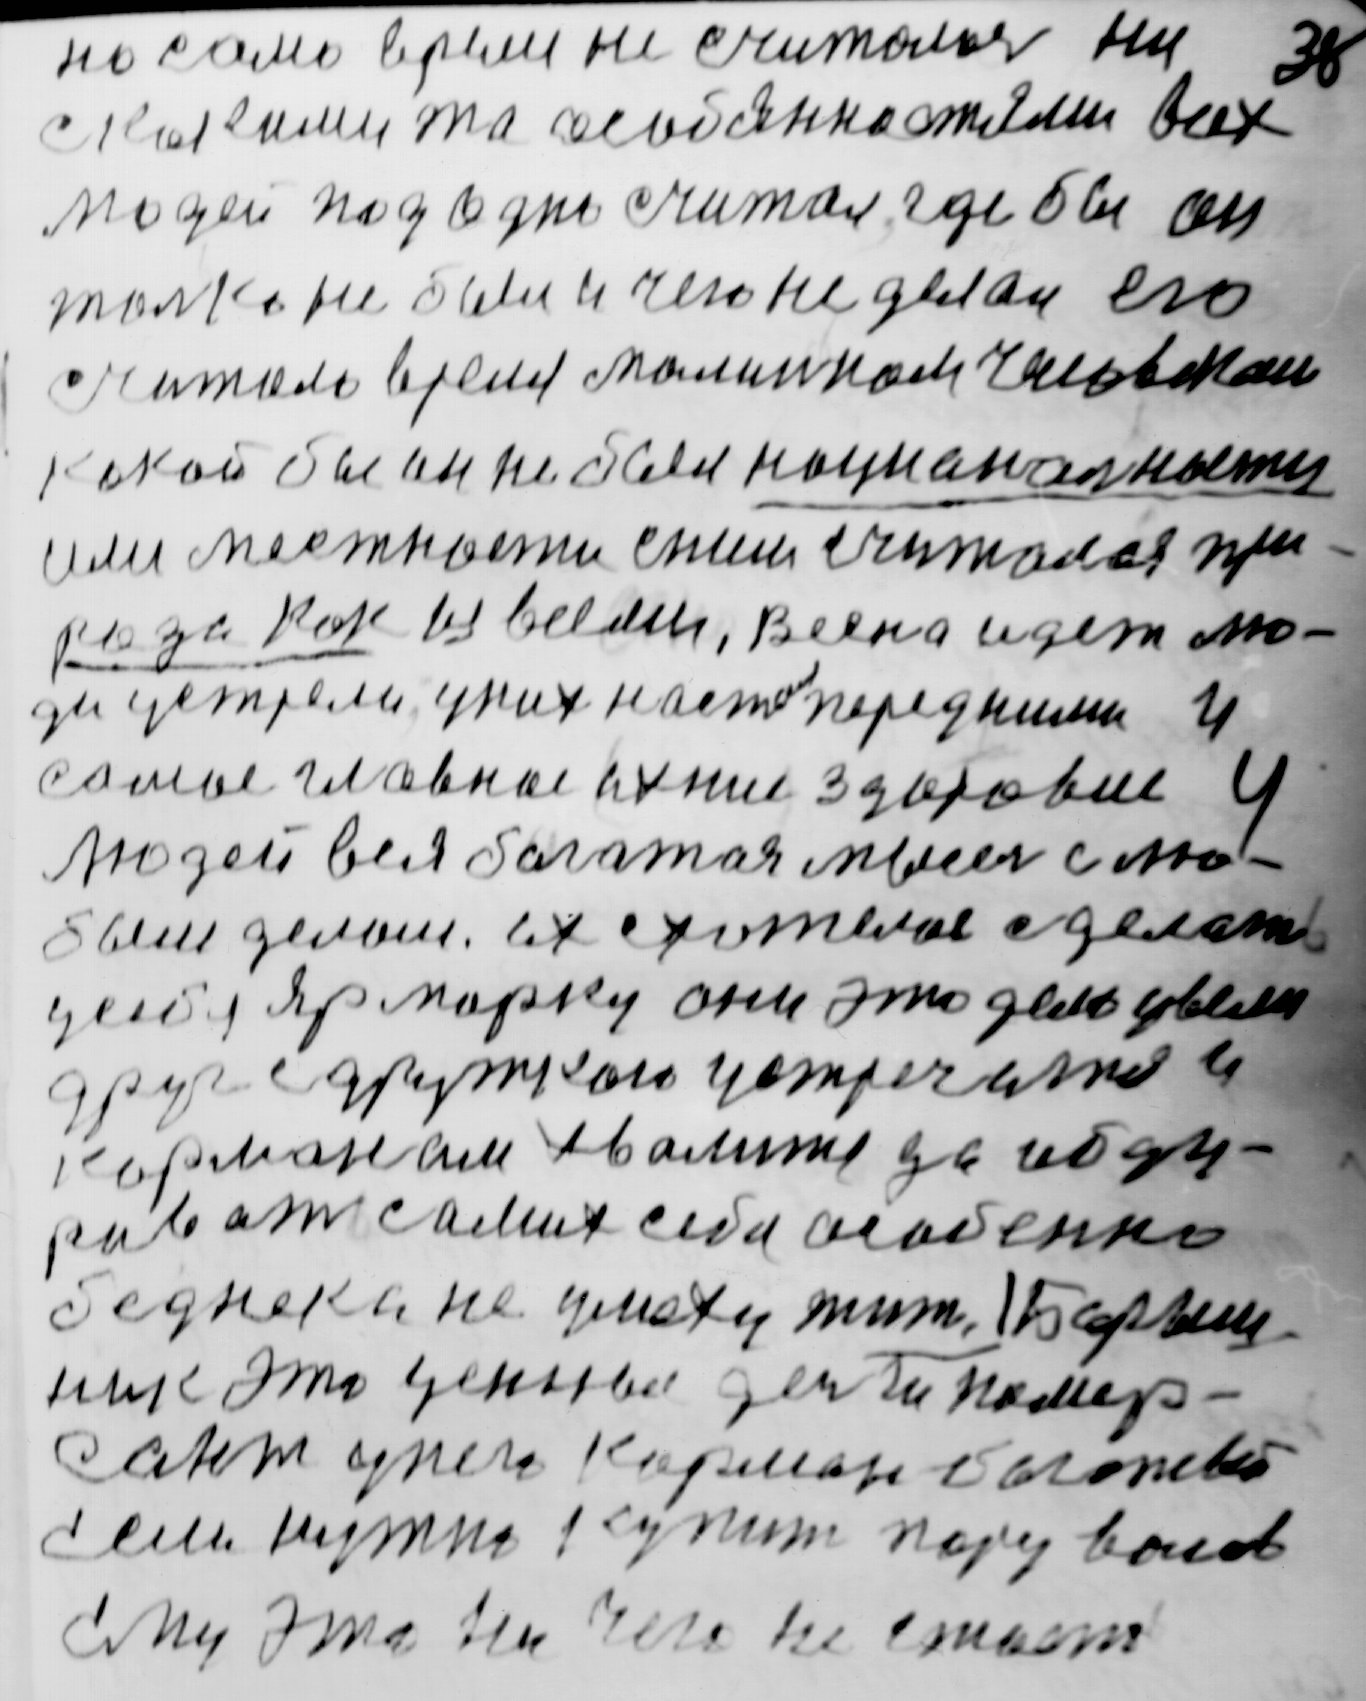 но само время не считалося ни 38
скокими то особенностями всех
людей под одно считал, где бы он
толко не был и чего не делал его
считало время маленкоем человекам
какой бы он не был нацианалности
или местности сними считалася при-
рода как из весями, Весна идет лю-
ди устрели, уних настоя перед ними и
самое главное ихние здоровие У
людей вся богатая мысля с лю-
бым делом. их схотелос сделать
усебя ярмарку они это дело увели
друг с друшком устречатя и
карманами хвалитя да обду-
риват самих себя особенно
беднека не умеху тит. Барыш-
ник это ценные денги
у него карман богатый
если нужно купит пару валов
ему это ни чего не стоет